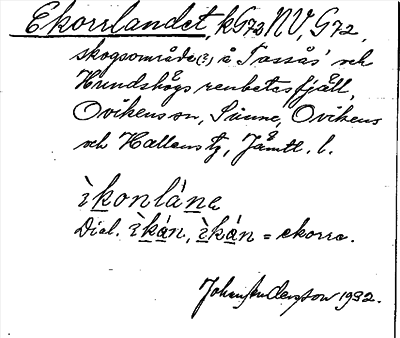 Ekorrlandet, kG72 NV, G72,
skogsområde(?) å Tassås' och
Hundshögs renbetesfjäll,
Ovikens sn, Sunne, Ovikens
och Hallens tg, Jämtl. l.
ìkonlánɛ
Dial. ìkán, ìkán = ekorre.
Johan Anderzson 1932.